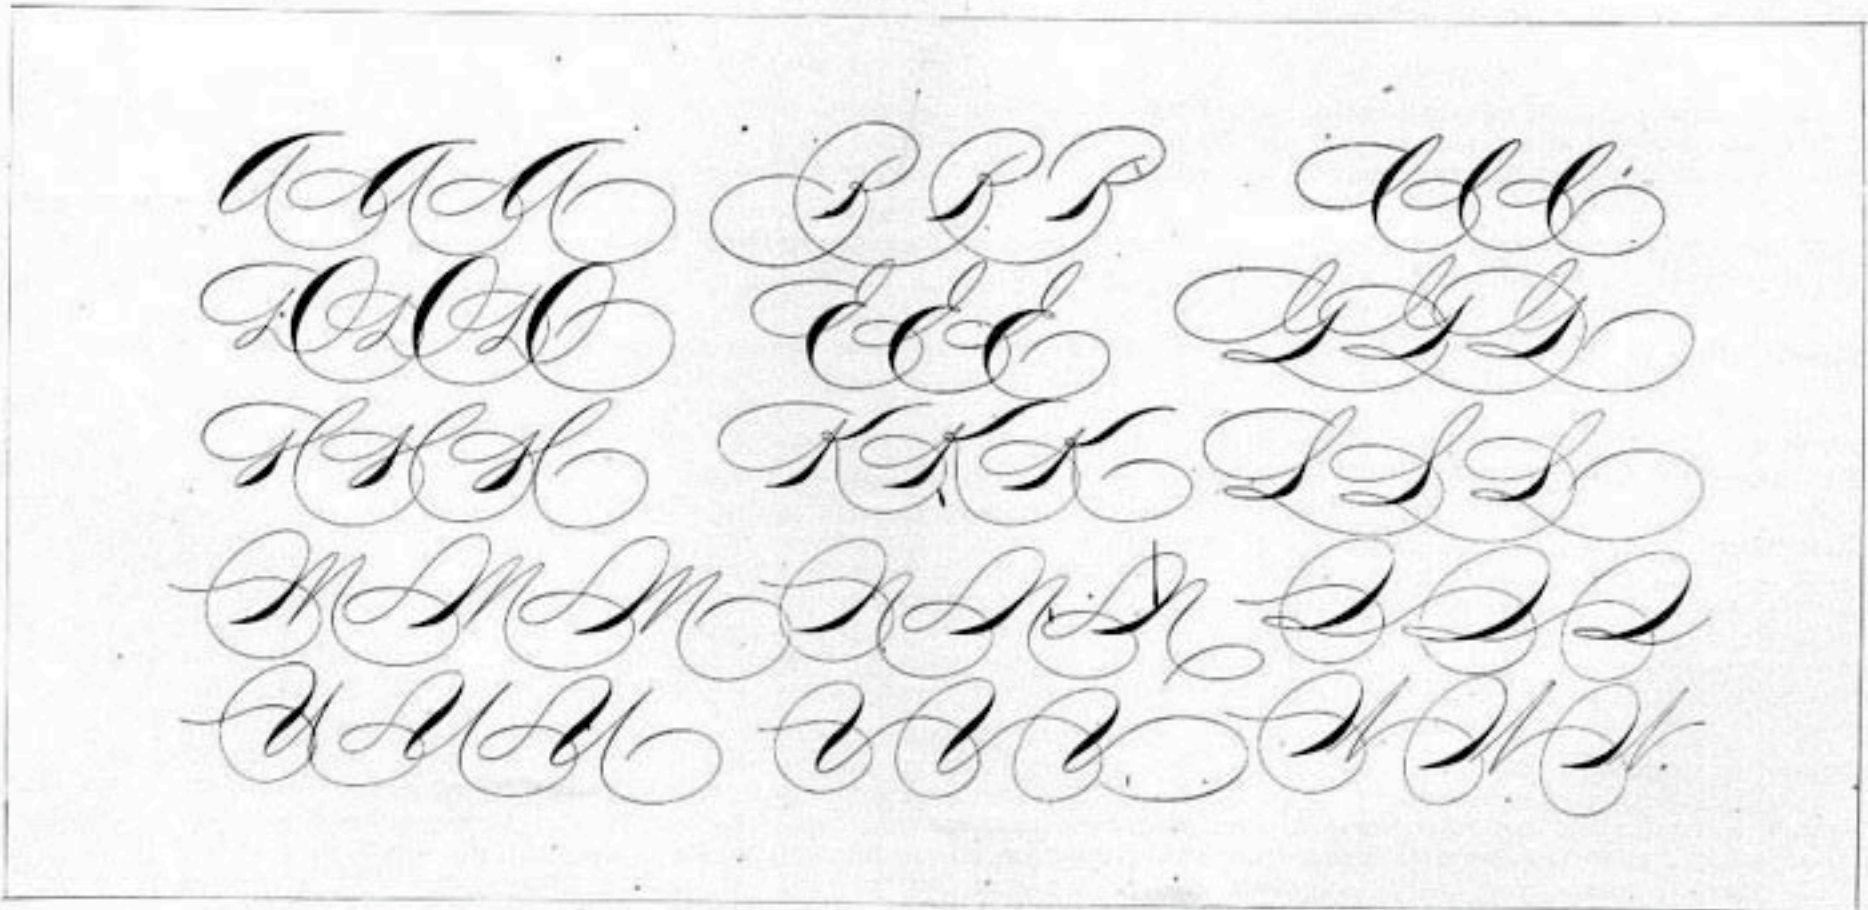 A A A B B B C C C
D D D E E E G G G
H H H K K K L L L
M M M N N N Q Q Q
U U U V V V W W W